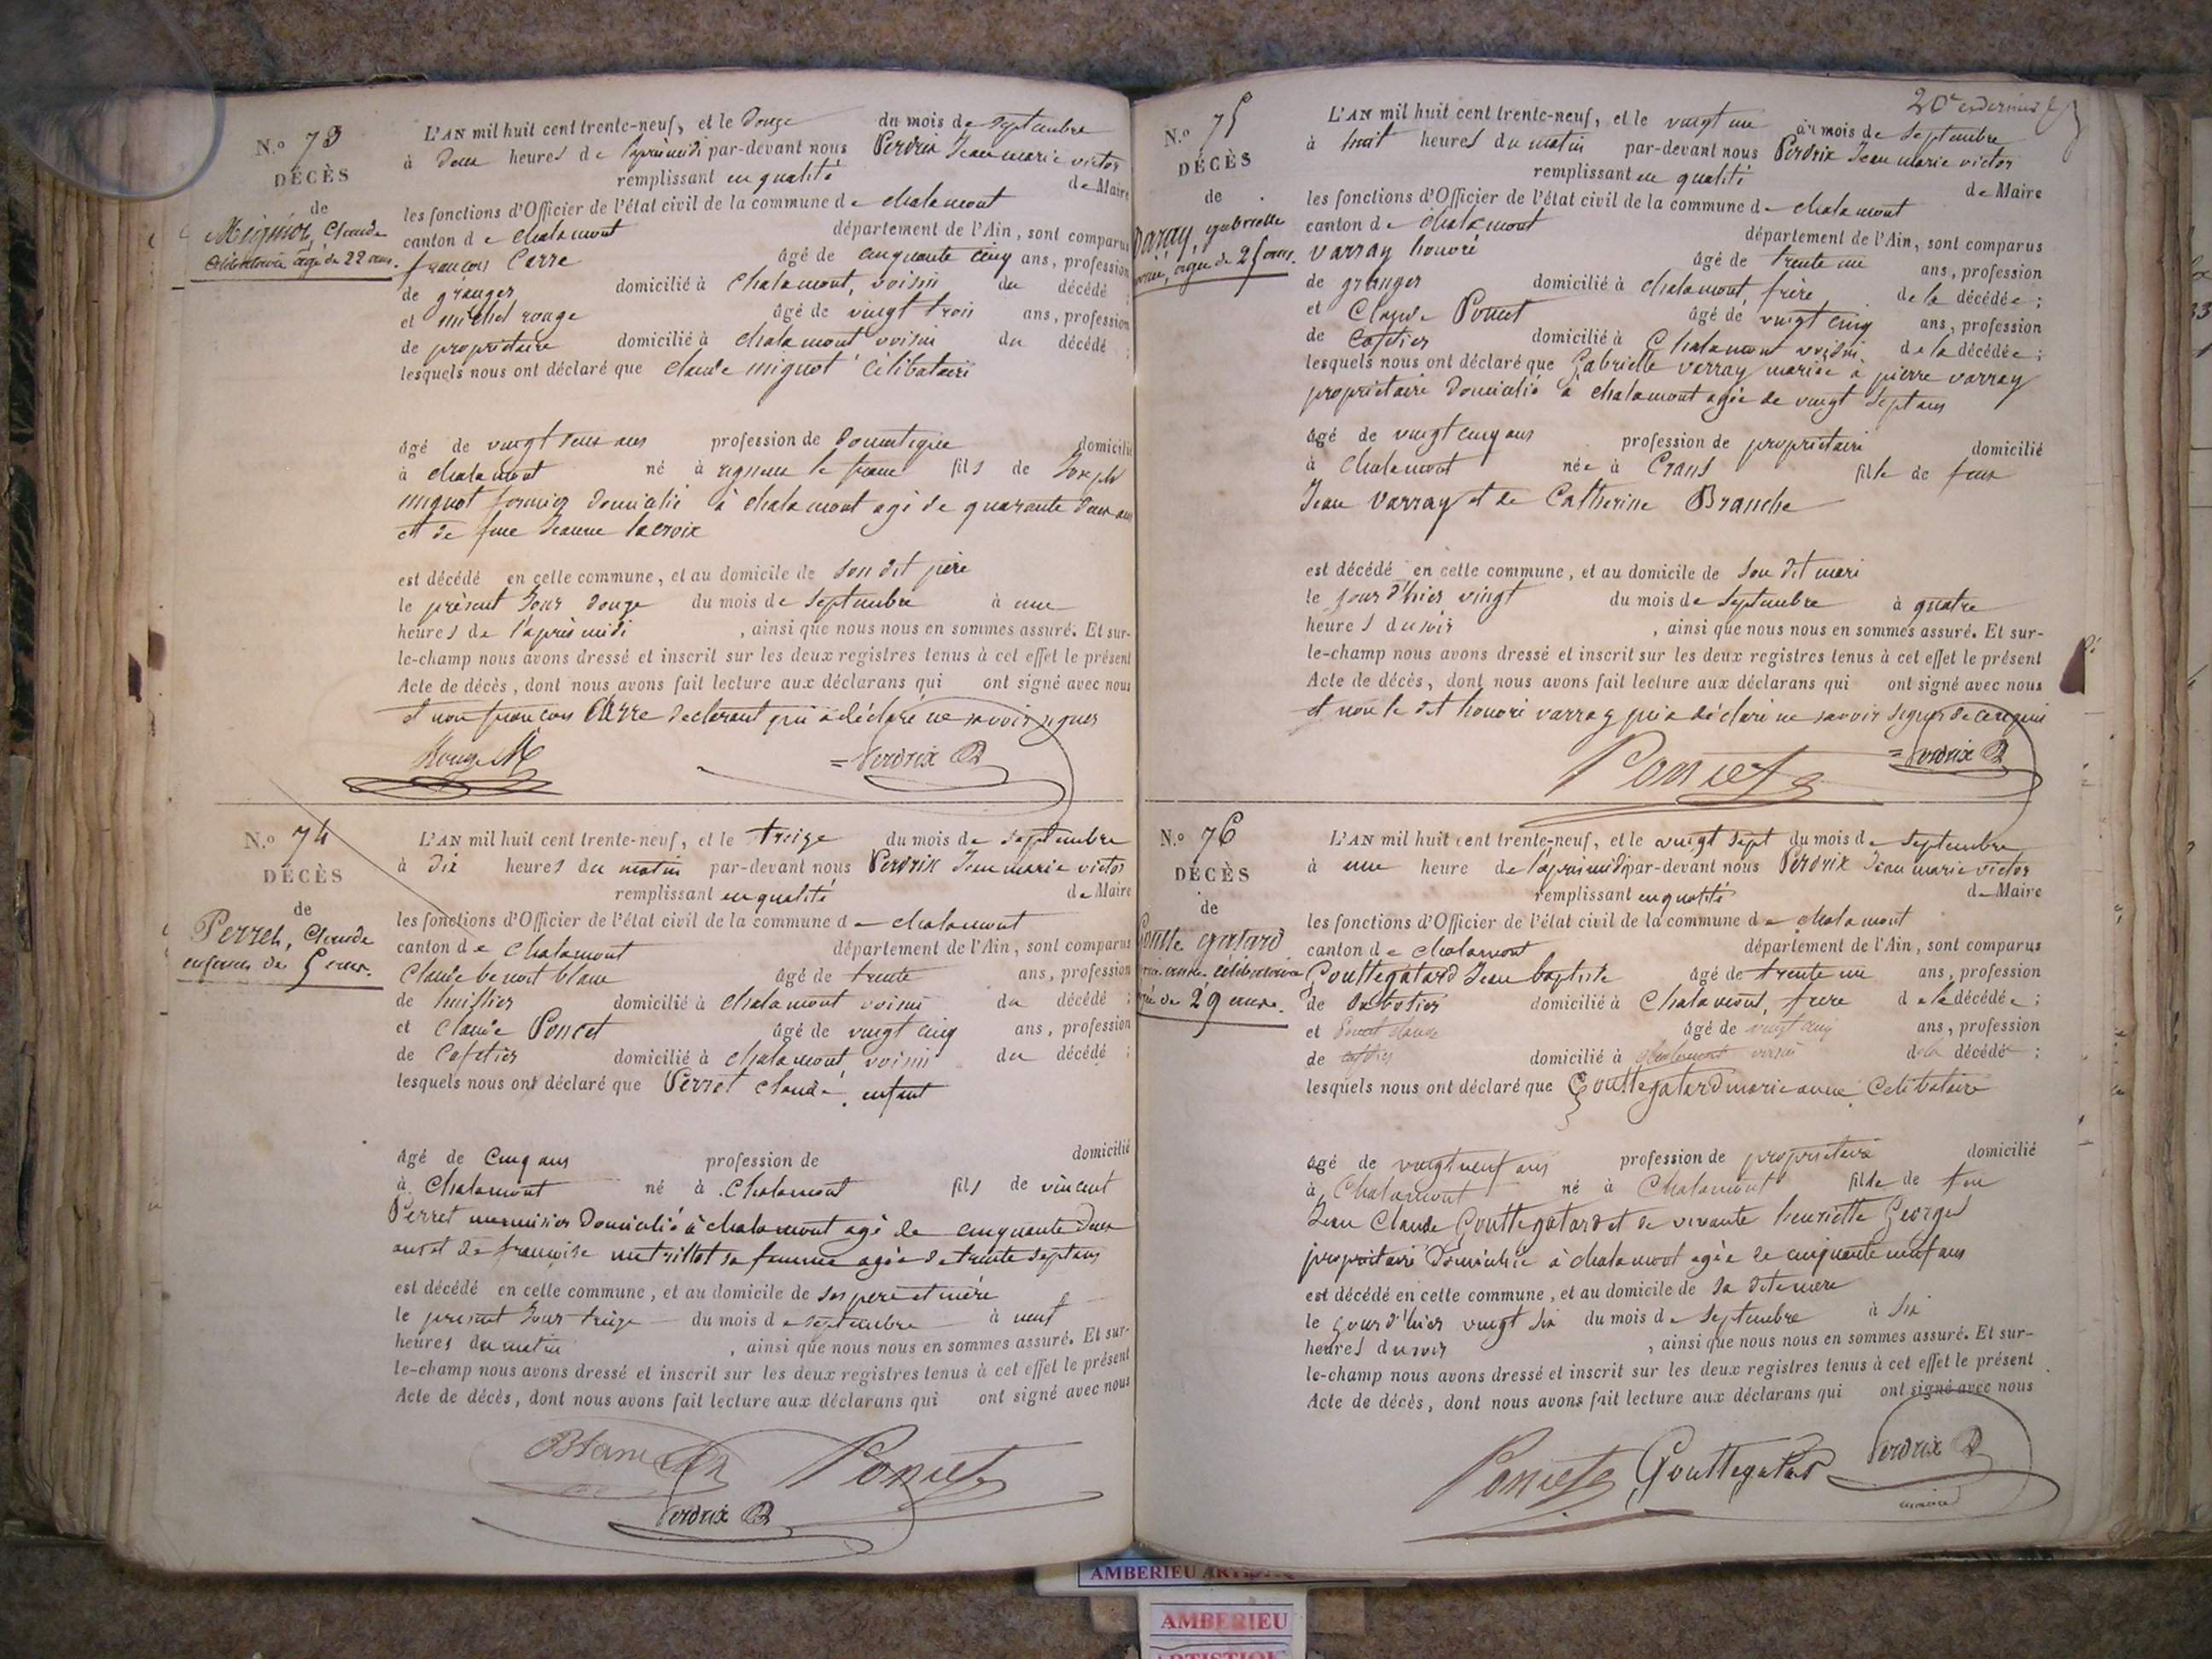 N.º 73
DÉCÈS
de
Mignot, Claude
célibataire âgé de 22 ans.
L'AN mil huit cent trente-neuf, et le douze du mois de septembre
à deux heures de l'après midi par-devant nous Perdrix Jean marie victor
remplissant en qualité de Maire
les fonctions d'Officier de l'état civil de la commune de chalamont
canton de chalamont département de l'Ain, sont comparus
françois Carre âgé de cinquante cinq ans, profession
de granger domicilié à Chalamont, voisin du décédé ;
et michel rouge âgé de vingt trois ans, profession
de propriétaire domicilié à chalamont voisin du décédé ;
lesquels nous ont déclaré que claude mignot célibataire
âgé de vingt deux ans profession de domestique domicilié
à chalamont né à rigneux le franc fils de Joseph
mignot fermier domicilié à chalamont agé de quarante deux ans
et de feue Jeanne lacroix
est décédé en cette commune, et au domicile de son dit père
le présent Jour douze du mois de septembre à une
heures de l'après midi , ainsi que nous nous en sommes assuré. Et sur-
le-champ nous avons dressé et inscrit sur les deux registres tenus à cet effet le présent
Acte de décès, dont nous avons fait lecture aux déclarans qui ont signé avec nous
et non françois Carre declarant qui a déclaré ne savoir signer
Rouge M Perdrix
N.º 74
DÉCÈS
de
Perret, Claude
enfant de 5 ans.
L'AN mil huit cent trente-neuf, et le treize du mois de septembre
à dix heures du matin par-devant nous Perdrix Jean marie victor
remplissant en qualité de Maire
les fonctions d'Officier de l'état civil de la commune de chalamont
canton de Chalamont département de l'Ain, sont comparus
Claude benoit blanc âgé de trente ans, profession
de huissier domicilié à Chalamont voisin du décédé ;
et Claude Poncet âgé de vingt cinq ans, profession
de Cafetier domicilié à chalamont voisin du décédé ;
lesquels nous ont déclaré que Perret claude enfant
âgé de Cinq ans profession de domicilié
à Chalamont né à Chalamont fils de vincent
Perret menuisier domicilié à chalamont agé de cinquante deux
ans et de françoise sa femme agée de trente sept ans
est décédé en cette commune, et au domicile de ses pere et mère
le présent Jour treize du mois de septembre à neuf
heures du matin , ainsi que nous nous en sommes assuré. Et sur-
le-champ nous avons dressé et inscrit sur les deux registres tenus à cet effet le présent
Acte de décès, dont nous avons fait lecture aux déclarans qui ont signé avec nous
Blanc Poncet
Perdrix
N.º 75
DÉCÈS
de
Varray, gabrielle
mariée, agée de 25 ans.
L'AN mil huit cent trente-neuf, et le vingt un du mois de septembre
à huit heures du matin par-devant nous Perdrix Jean marie victor
remplissant en qualité de Maire
les fonctions d'Officier de l'état civil de la commune de chalamont
canton de chalamont département de l'Ain, sont comparus
varray honoré âgé de trente un ans, profession
de granger domicilié à chalamont, frère de la décédée ;
et Claude Poncet âgé de vingt cinq ans, profession
de Cafetier domicilié à Chalamont voisin de la décédée ;
lesquels nous ont déclaré que Gabrielle varray mariée à pierre varray
propriétaire domicilié à chalamont agée de vingt sept ans
âgé de vingt cinq ans profession de propriétaire domicilié
à Chalamont née à Crans fille de feux
Jean Varray et de Catherine Branche
est décédé en cette commune, et au domicile de son dit mari
le jour d'hier vingt du mois de septembre à quatre
heures du soir , ainsi que nous nous en sommes assuré. Et sur-
le-champ nous avons dressé et inscrit sur les deux registres tenus à cet effet le présent
Acte de décès, dont nous avons fait lecture aux déclarans qui ont signé avec nous
et non le dit honoré varray qui a déclaré ne savoir signer de ce requis
Poncet Perdrix
N.º 76
DÉCÈS
de
Goutte gatard
célibataire
agée de 29 ans.
L'AN mil huit cent trente-neuf, et le vingt sept du mois de septembre
à une heure de l'après midi par-devant nous Perdrix Jean marie victor
remplissant en qualité de Maire
les fonctions d'Officier de l'état civil de la commune de chalamont
canton de chalamont département de l'Ain, sont comparus
Gouttegatard Jean baptiste âgé de trente un ans, profession
de Sabotier domicilié à Chalamont, frere de la décédée ;
et Poncet claude âgé de vingt cinq ans, profession
de cafetier domicilié à chalamont voisin de la décédée ;
lesquels nous ont déclaré que Gouttegatard marie anne Celibataire
âgé de vingt neuf ans profession de propriétaire domicilié
à Chalamont né à Chalamont fille de feu
Jean Claude Gouttegatard et de vivante henriette Georges
propriétaire domiciliée à chalamont agée de cinquante neuf ans
est décédé en cette commune, et au domicile de sa dite mere
le jour d'hier vingt six du mois de septembre à six
heures du soir , ainsi que nous nous en sommes assuré. Et sur-
le-champ nous avons dressé et inscrit sur les deux registres tenus à cet effet le présent
Acte de décès, dont nous avons fait lecture aux déclarans qui ont signé avec nous
Poncet Gouttegatard Perdrix
AMBERIEU
AMBERIEU